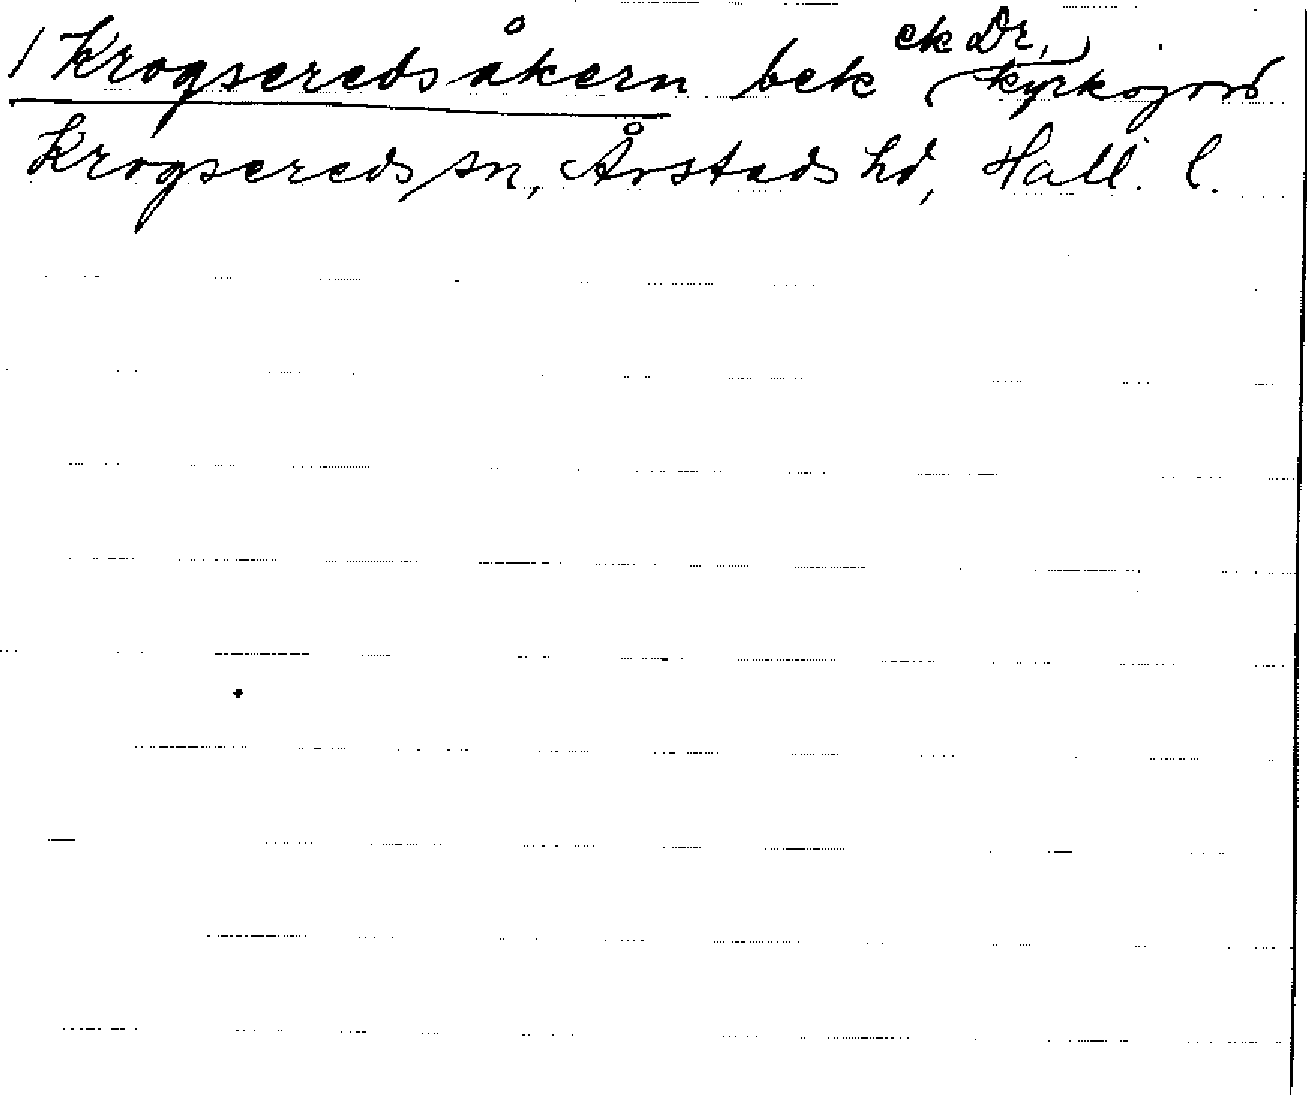 / Krogseredsåkern bek (ek Dr,) kyrkojord
Krogsereds sn, Årstads hd, Hall. l.